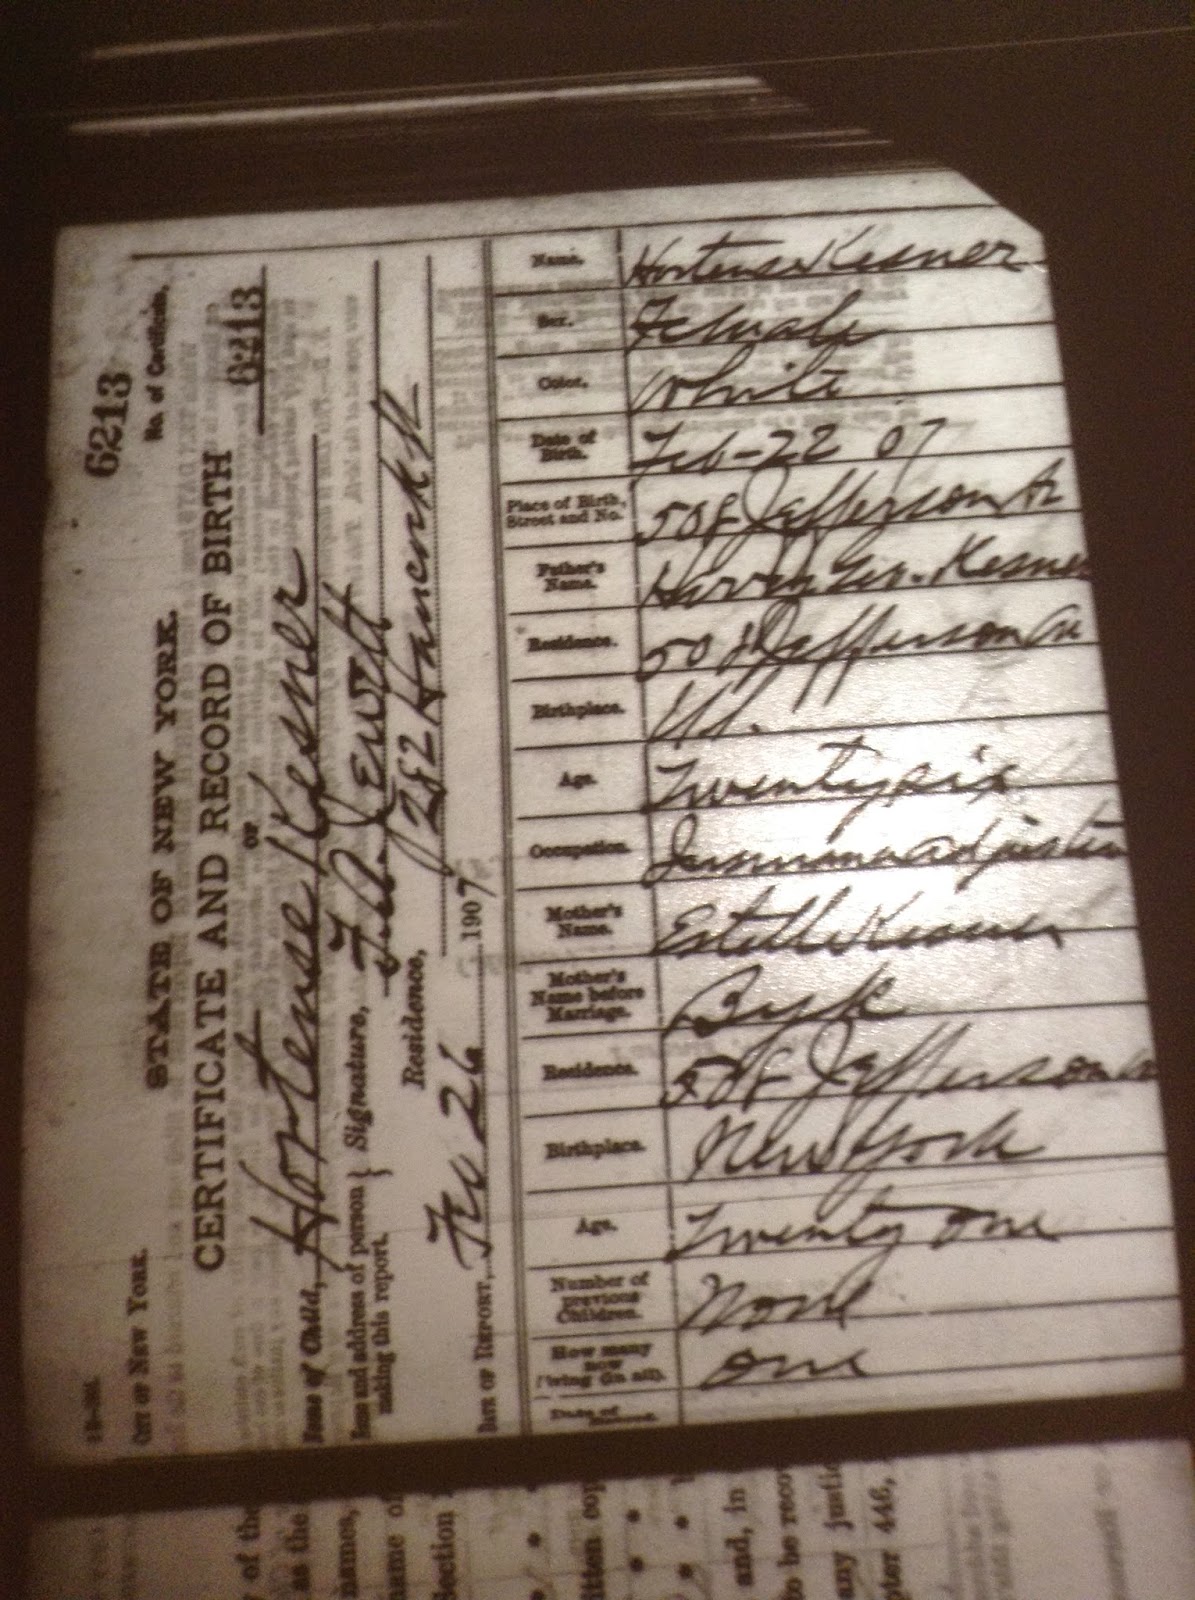 6213
No. of Certificate.
CITY OF NEW YORK.
STATE OF NEW YORK.
CERTIFICATE AND RECORD OF BIRTH
OF
6213
Name of Child, Hortense Kesner
Name and address of person making this report. } Signature, Jewett
Residence, 282 Hancock St
DATE OF REPORT, 26 1907
Name. Hortense Kesner
Sex. Female
Color. White
Date of Birth. Feb-22 07
Place of Birth, Street and No. 508 Jefferson Av
Father's Name. Kesner
Residence. 508 Jefferson Av
Birthplace. U.S.
Age. Twenty six
Occupation. Insurance adjuster
Mother's Name. Estelle Kesner
Mother's Name before Marriage. Byk
Residence. 508 Jefferson Av
Birthplace. New York
Age. Twenty One
Number of previous Children. None
How many now living (in all). One
Date of
y of the
as the
names,
name of
Section
itten cop
and, in
to be reco
any justi
pter 446,